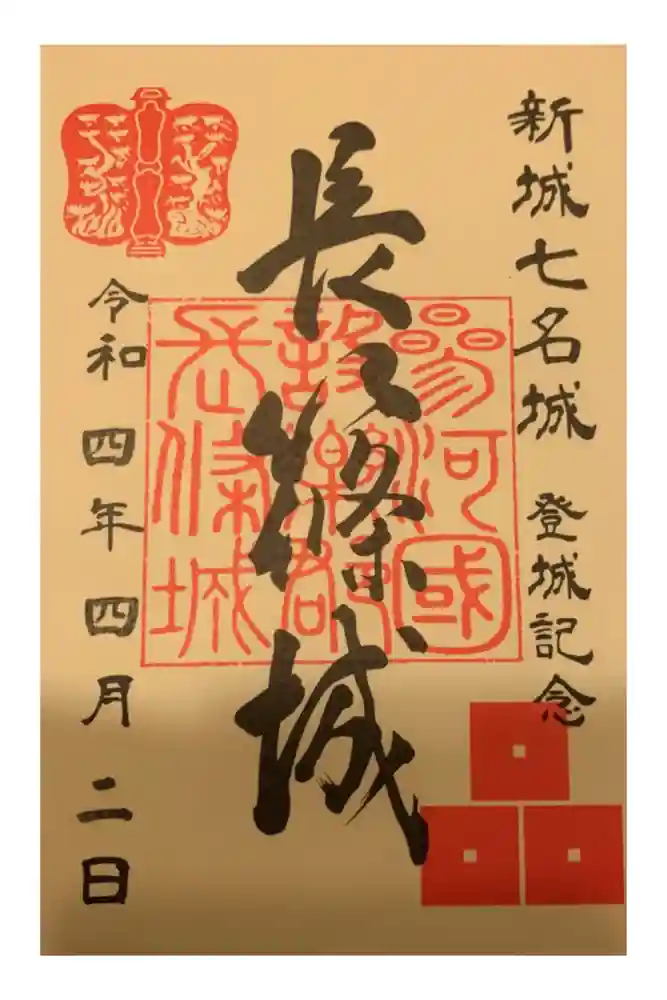 新城七名城 登城記念
參河國
設樂郡
長條城
長篠城
令和 四年 四月 二日